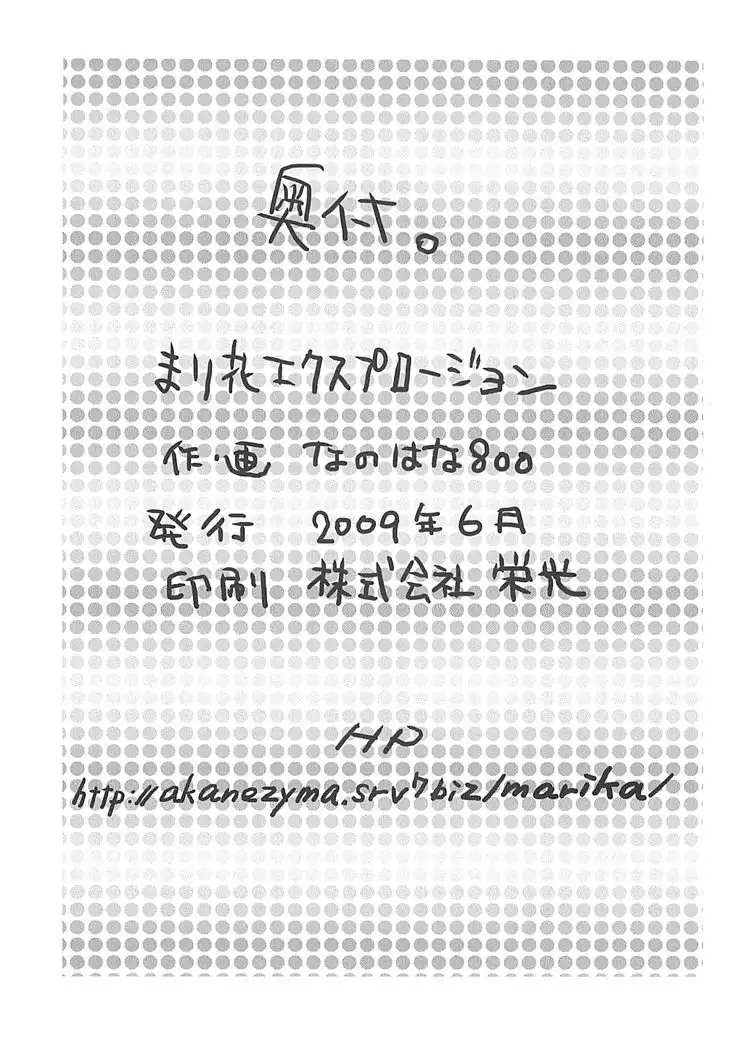 奥付。
まり花エクスプロージョン
作・画 なのはな800
発行 2009年6月
印刷 株式会社 栄光
HP
http://akanezyma.srv7biz/marika/